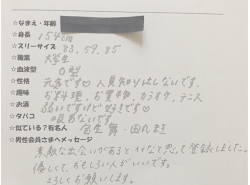 ☆なまえ・年齢
☆身長 154cm
☆スリーサイズ 83.59.85
☆職業 大学生
☆血液型 O型
☆性格 元気です♡ 人見知りはしないです。
☆趣味 お料理、お買物、カラオケ、テニス
☆お酒 弱いですけど好きです♡
☆タバコ 吸わないです
☆似ている?有名人 宮里 舞・田丸まき
☆男性会員さまへメッセージ
素敵な出会いがあるとイイなと思って登録しました。
優しくて、おもしろい人がいいです。
よろしくお願いします。